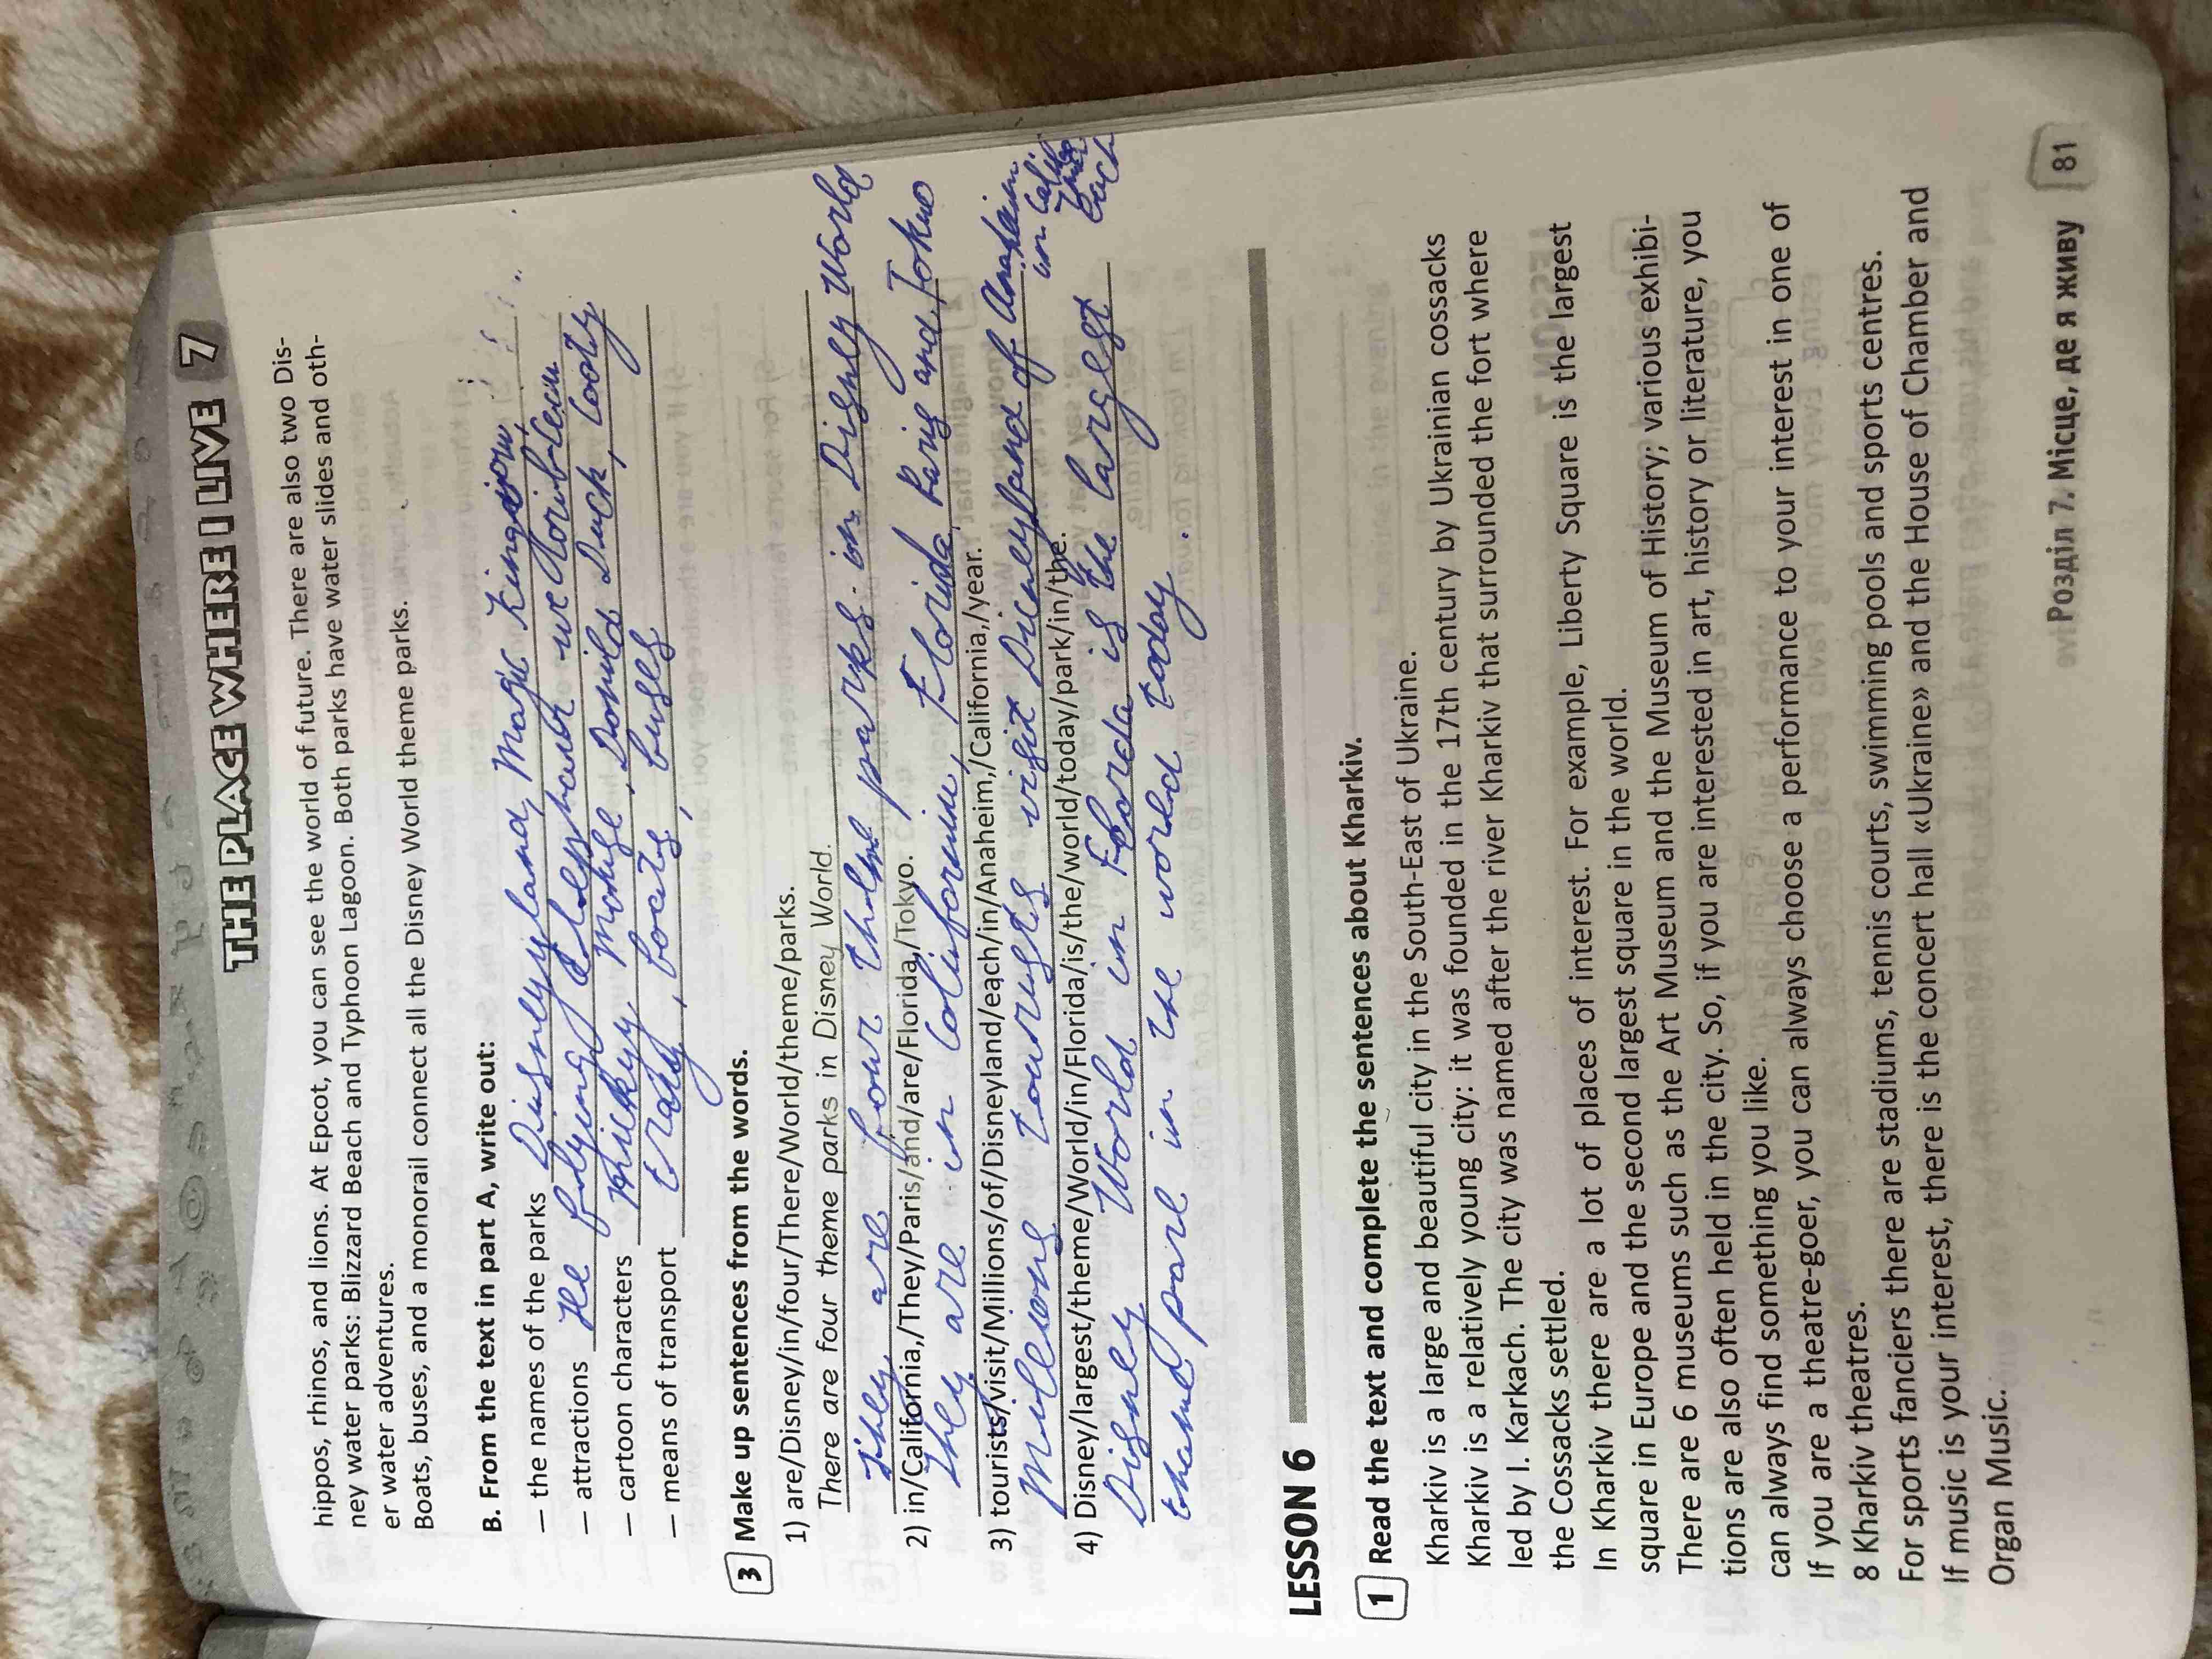 THE PLACE WHERE I LIVE 7
hippos, rhinos, and lions. At Epcot, you can see the world of future. There are also two Dis-
ney water parks: Blizzard Beach and Typhoon Lagoon. Both parks have water slides and oth-
er water adventures.
Boats, buses, and a monorail connect all the Disney World theme parks.
B. From the text in part A, write out:
— the names of the parks Disneyland, Magic Kingdom,
— attractions The flying Elephant
— cartoon characters Mickey Mouse, Donald Duck, Goofy
— means of transport train, boats, buses
3 Make up sentences from the words.
1) are/Disney/in/four/There/World/theme/parks.
There are four theme parks in Disney World.
They are four theme parks in Disney World
2) in/California,/They/Paris/and/are/Florida,/Tokyo.
They are in California, Florida, Paris and Tokio
3) tourists/visit/Millions/of/Disneyland/each/in/Anaheim,/California,/year.
Millions tourists visit Disneyland of Anaheim
in
each
4) Disney/largest/theme/World/in/Florida/is/the/world/today/park/in/the.
Disney World in Florida is the largest
theme park in the world today.
LESSON 6
1 Read the text and complete the sentences about Kharkiv.
Kharkiv is a large and beautiful city in the South-East of Ukraine.
Kharkiv is a relatively young city: it was founded in the 17th century by Ukrainian cossacks
led by I. Karkach. The city was named after the river Kharkiv that surrounded the fort where
the Cossacks settled.
In Kharkiv there are a lot of places of interest. For example, Liberty Square is the largest
square in Europe and the second largest square in the world.
There are 6 museums such as the Art Museum and the Museum of History; various exhibi-
tions are also often held in the city. So, if you are interested in art, history or literature, you
can always find something you like.
If you are a theatre-goer, you can always choose a performance to your interest in one of
8 Kharkiv theatres.
For sports fanciers there are stadiums, tennis courts, swimming pools and sports centres.
If music is your interest, there is the concert hall «Ukraine» and the House of Chamber and
Organ Music.
Розділ 7. Місце, де я живу 81